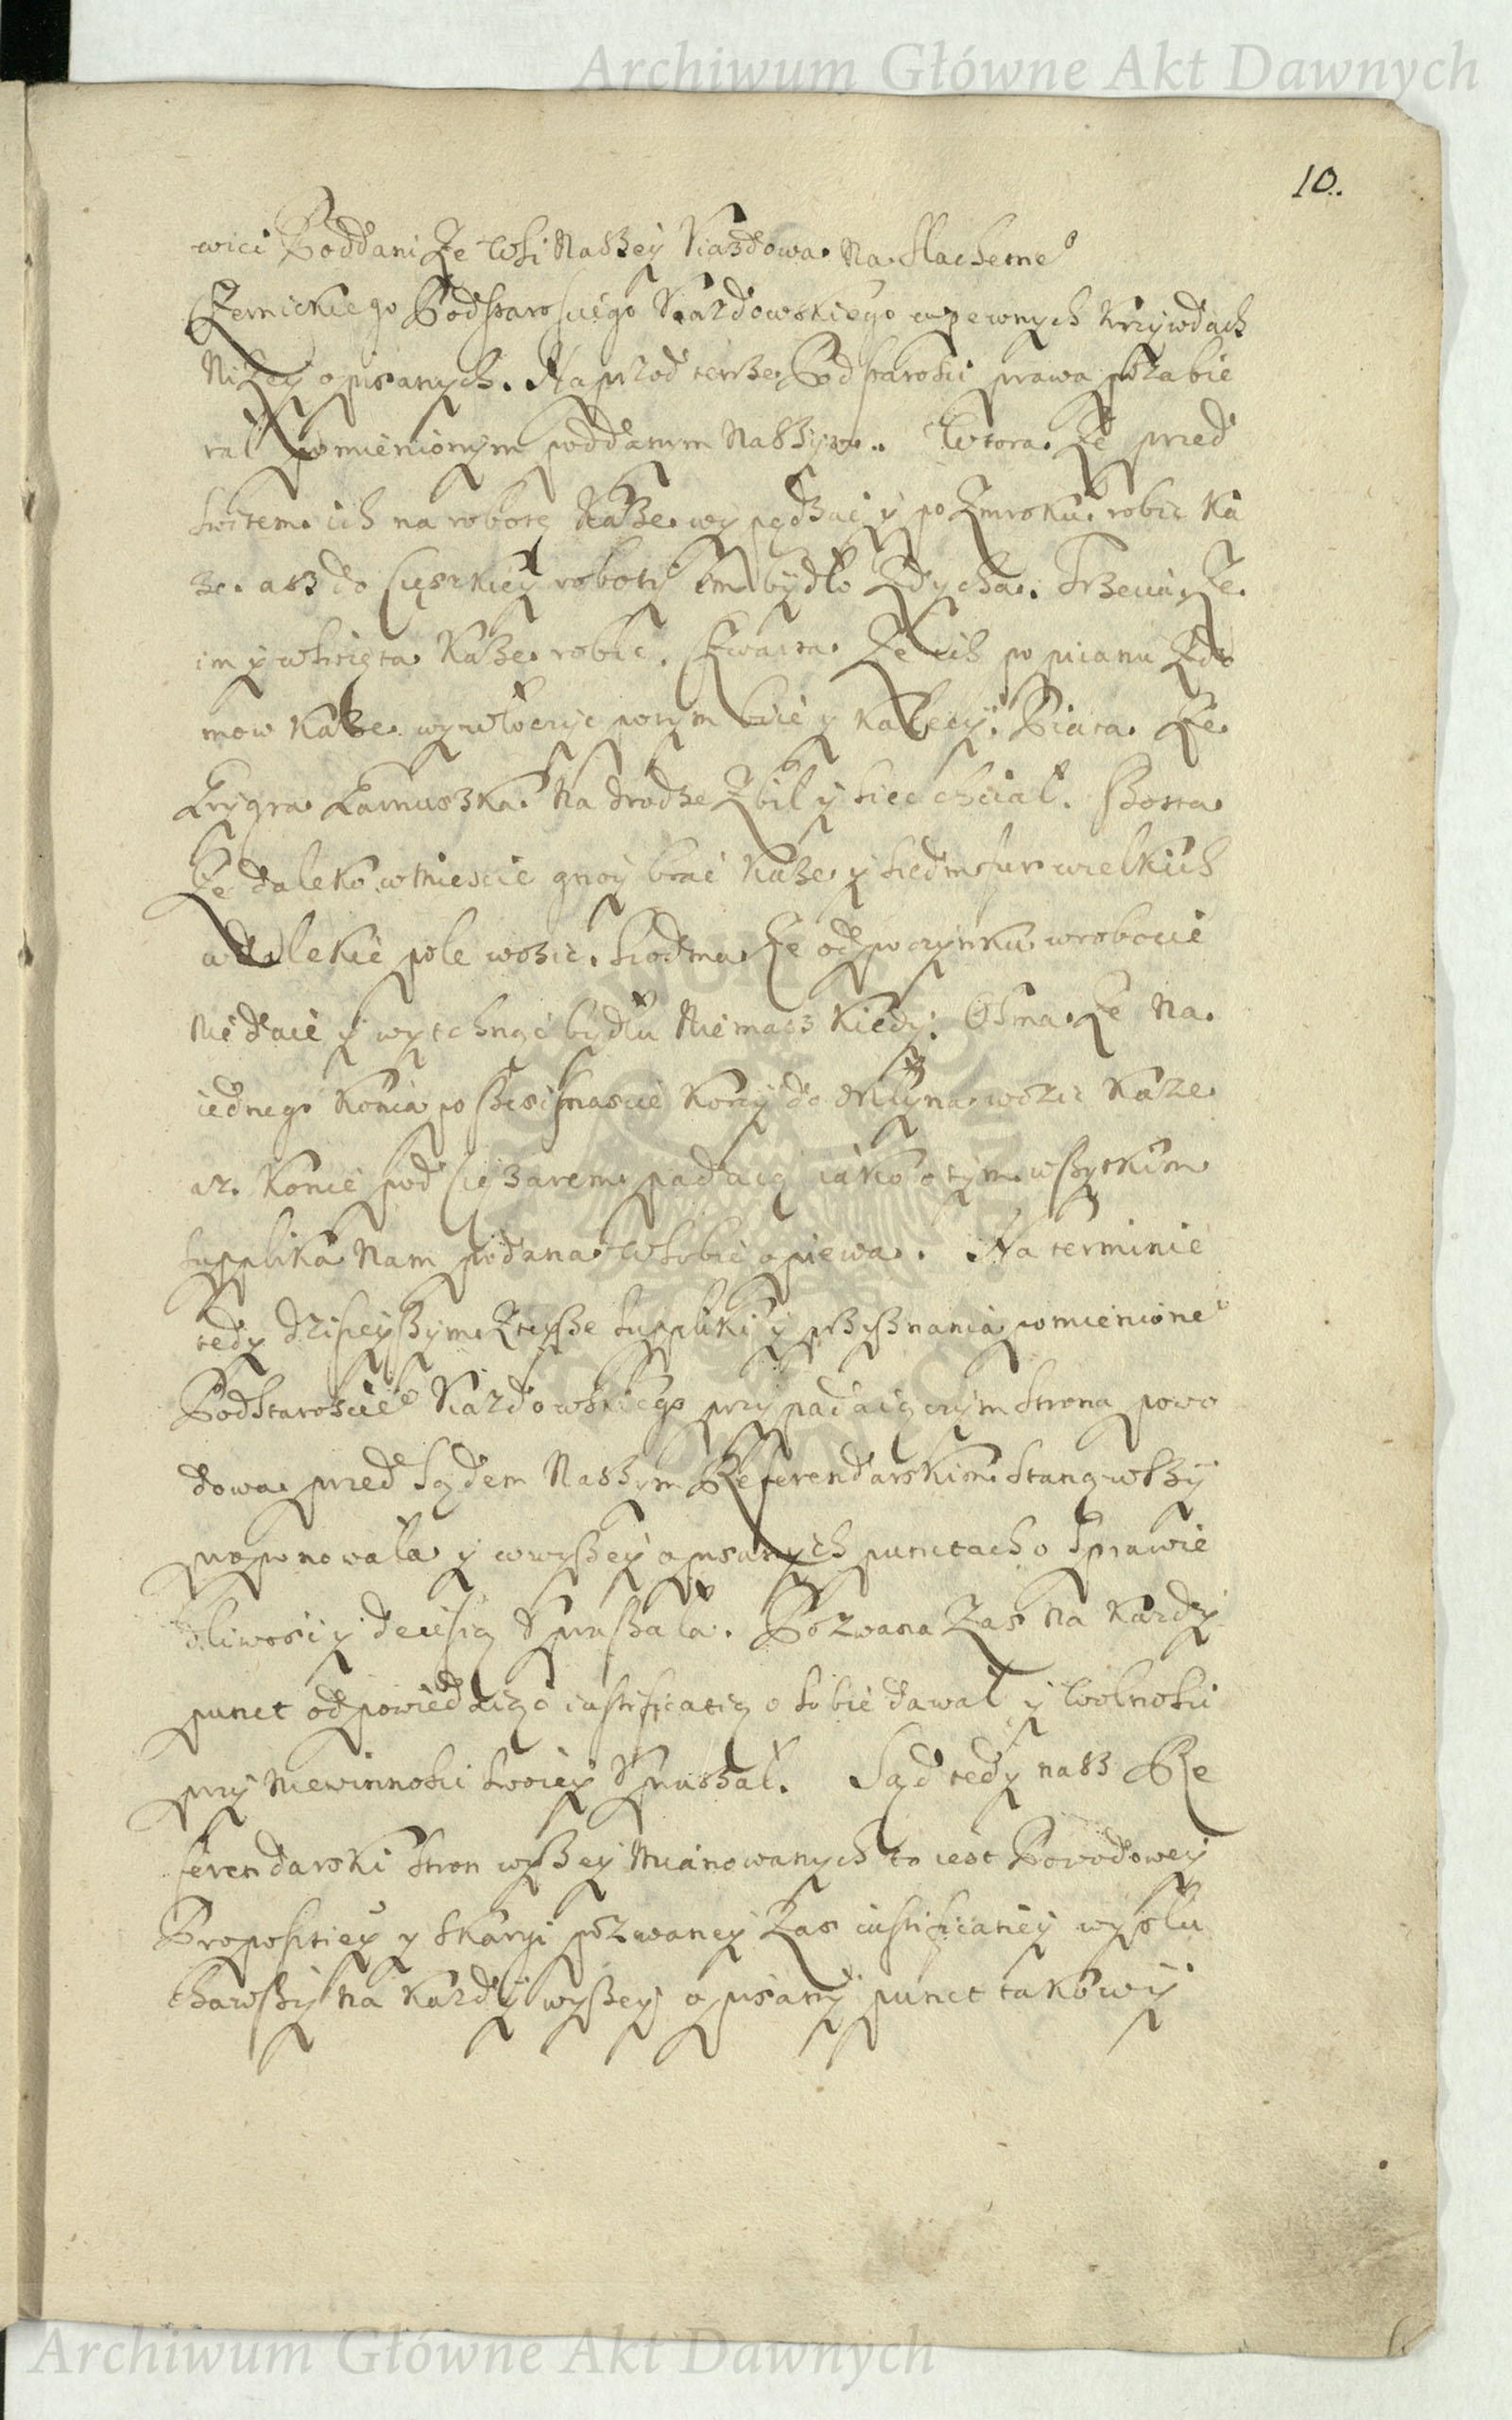 Archiwum Główne Akt Dawnych
10.
wici Poddani Ze Wsi Naszey Kiazdowa Na Slachetne°
Czernickiego Podstarosciego Kiazdowskiego w pewnych krzywdach
Nizey opisanych. Naprzod tenze Podstarosci prawa pozabie
rał pomienionym poddanym Naszym. Wtora Ze przed
switem ich na robotę Kaze wypędzac y po Zmroku robic Ka
ze. asz do cięszkiey roboty im bydło Zdycha. Trzecia Ze
im y w swięta Kaze robic. Czwarta Ze ich po pianu Zdo
mow Kaze wywłoczyc potym bić y kaleczy. Piata Ze
na drodze Zbił y siec chciał. Szosta
Ze daleko w Miescie gnoy brać Kaze y siedm fur wielkich
a dalekie pole wozic. Siodma Ze odpoczynku w robocie
Nie daie y wytchnąć bydłu Niemasz kiedy. Osma Ze Na
iednego Konia po szesnascie korcy do Młyna wozic Kaze
az Konie pod cięzarem padaią iako o tym wszytkim
supplika Nam podana w sobie opiewa. Na terminie
tedy dzisieyszym Zteysze suppliki y pomienione°
Podstarosciе° Kiazdowskiego przypadaiącym Strona powo
dowa przed Sądem Naszym Referendarskim Stanąwszy
proponowała y w wyszey opisanych punctach o Sprawie
dliwosc y decisią Upraszała. Pozwana Zas Na kazdy
punct odpowiedaiąc iustificatią o sobie dawał y Wolnosci
przy Niewinnosci swoiey Upraszał. Sąd tedy nasz Re
ferendarski Stron wyszey Mianowanych to iest Powodowey
Propositiey y Skargi pozwaney Zas iustificatiey wysłu
chawszy Na kazdy wyszey opisany punct takowy
Archiwum Główne Akt Dawnych